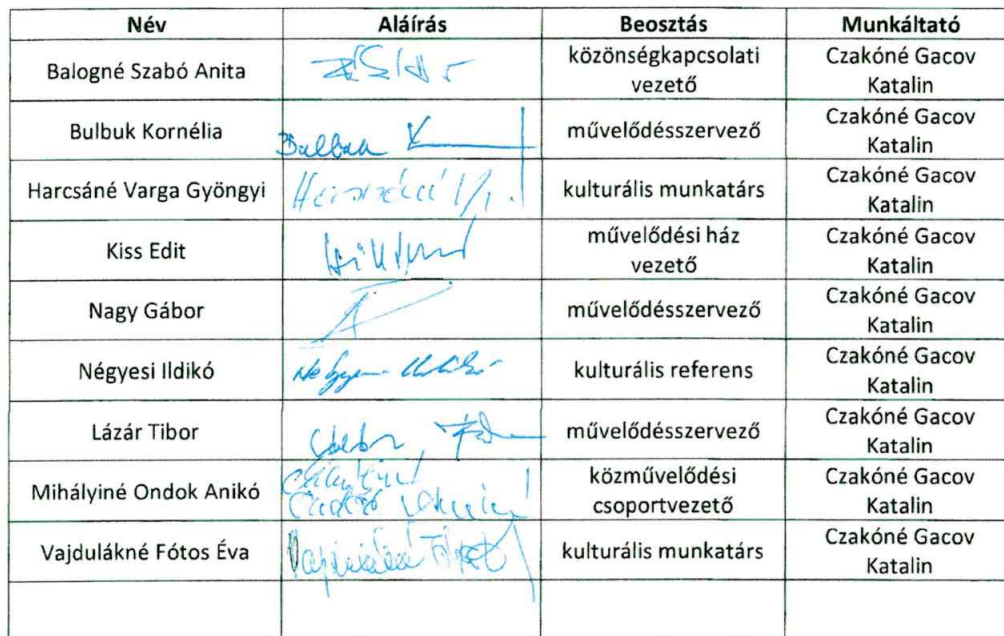 Név Aláírás Beosztás Munkáltató
Balogné Szabó Anita közönségkapcsolati vezető Czakóné Gacov Katalin
Bulbuk Kornélia Bulbuk K művelődésszervező Czakóné Gacov Katalin
Harcsáné Varga Gyöngyi kulturális munkatárs Czakóné Gacov Katalin
Kiss Edit művelődési ház vezető Czakóné Gacov Katalin
Nagy Gábor művelődésszervező Czakóné Gacov Katalin
Négyesi Ildikó kulturális referens Czakóné Gacov Katalin
Lázár Tibor művelődésszervező Czakóné Gacov Katalin
Mihályiné Ondok Anikó közművelődési csoportvezető Czakóné Gacov Katalin
Vajdulákné Fótos Éva kulturális munkatárs Czakóné Gacov Katalin